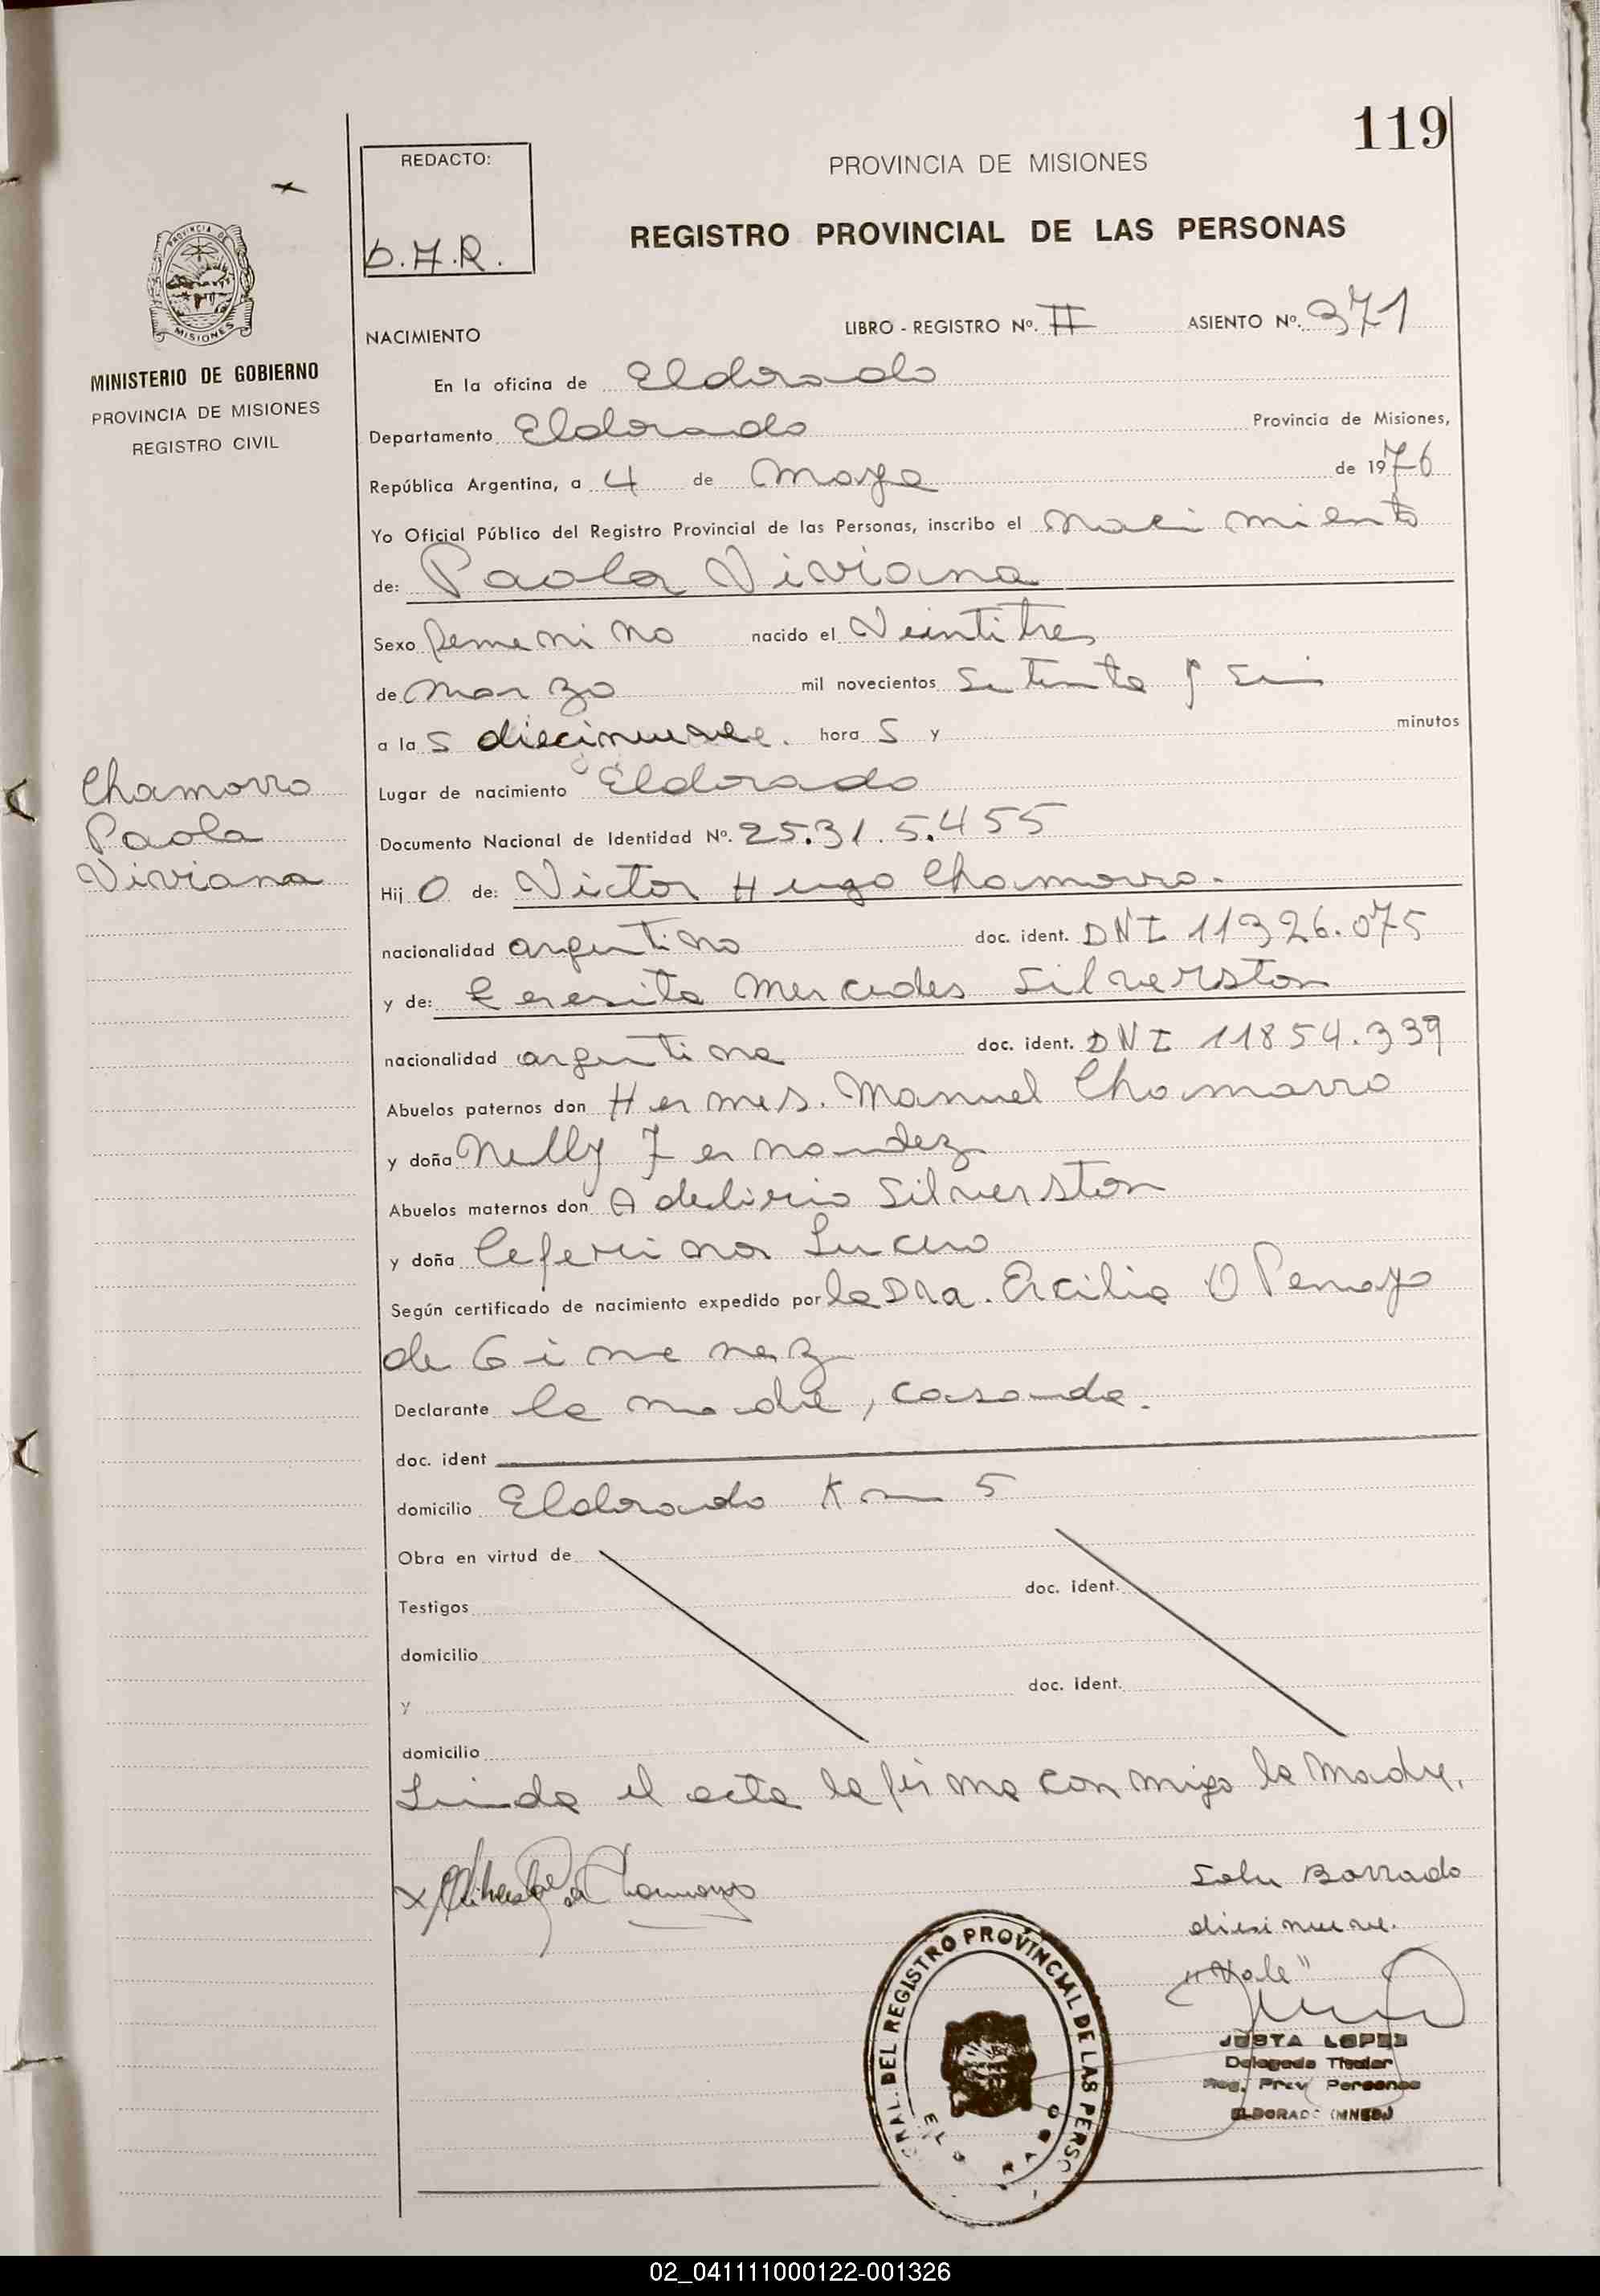 119
REDACTO:
PROVINCIA DE MISIONES
REGISTRO PROVINCIAL DE LAS PERSONAS
PROVINCIA DE
MISIONES
NACIMIENTO LIBRO - REGISTRO Nº. II ASIENTO Nº. 371
MINISTERIO DE GOBIERNO
PROVINCIA DE MISIONES
REGISTRO CIVIL
En la oficina de Eldorado
Departamento Eldorado Provincia de Misiones,
República Argentina, a 4 de Mayo de 1976
Yo Oficial Público del Registro Provincial de las Personas, inscribo el nacimiento
de: Paola Viviana
Sexo femenino nacido el Veintitres
de marzo mil novecientos setenta y seis
a la s diecinueve. hora s y minutos
Lugar de nacimiento Eldorado
Chamorro
Paola
Viviana
Documento Nacional de Identidad Nº. 25.315.455
Hij a de: Victor Hugo Chamorro.
nacionalidad argentino doc. ident. DNI 11326.075
y de: Teresita Mercedes Silverston
nacionalidad argentina doc. ident. DNI 11854.339
Abuelos paternos don Hermes. Manuel Chamorro
y doña Nelly Fernandez
Abuelos maternos don Silverston
y doña Ceferina Lucero
Según certificado de nacimiento expedido por la Dra. Ercilia O
de Gimenez
Declarante la madre, casada.
doc. ident
domicilio Eldorado Km 5
Obra en virtud de
Testigos doc. ident.
domicilio
y doc. ident.
domicilio
Leida el acta la firma conmigo la Madre.
Sobre Borrado
diesinueve.
"Vale"
JUSTA LOPEZ
Delegada Titular
Reg. Prov Personas
ELDORADO (MNES.)
DEL REGISTRO PROVINCIAL DE LAS PERSO
ELDORADO
02_041111000122-001326